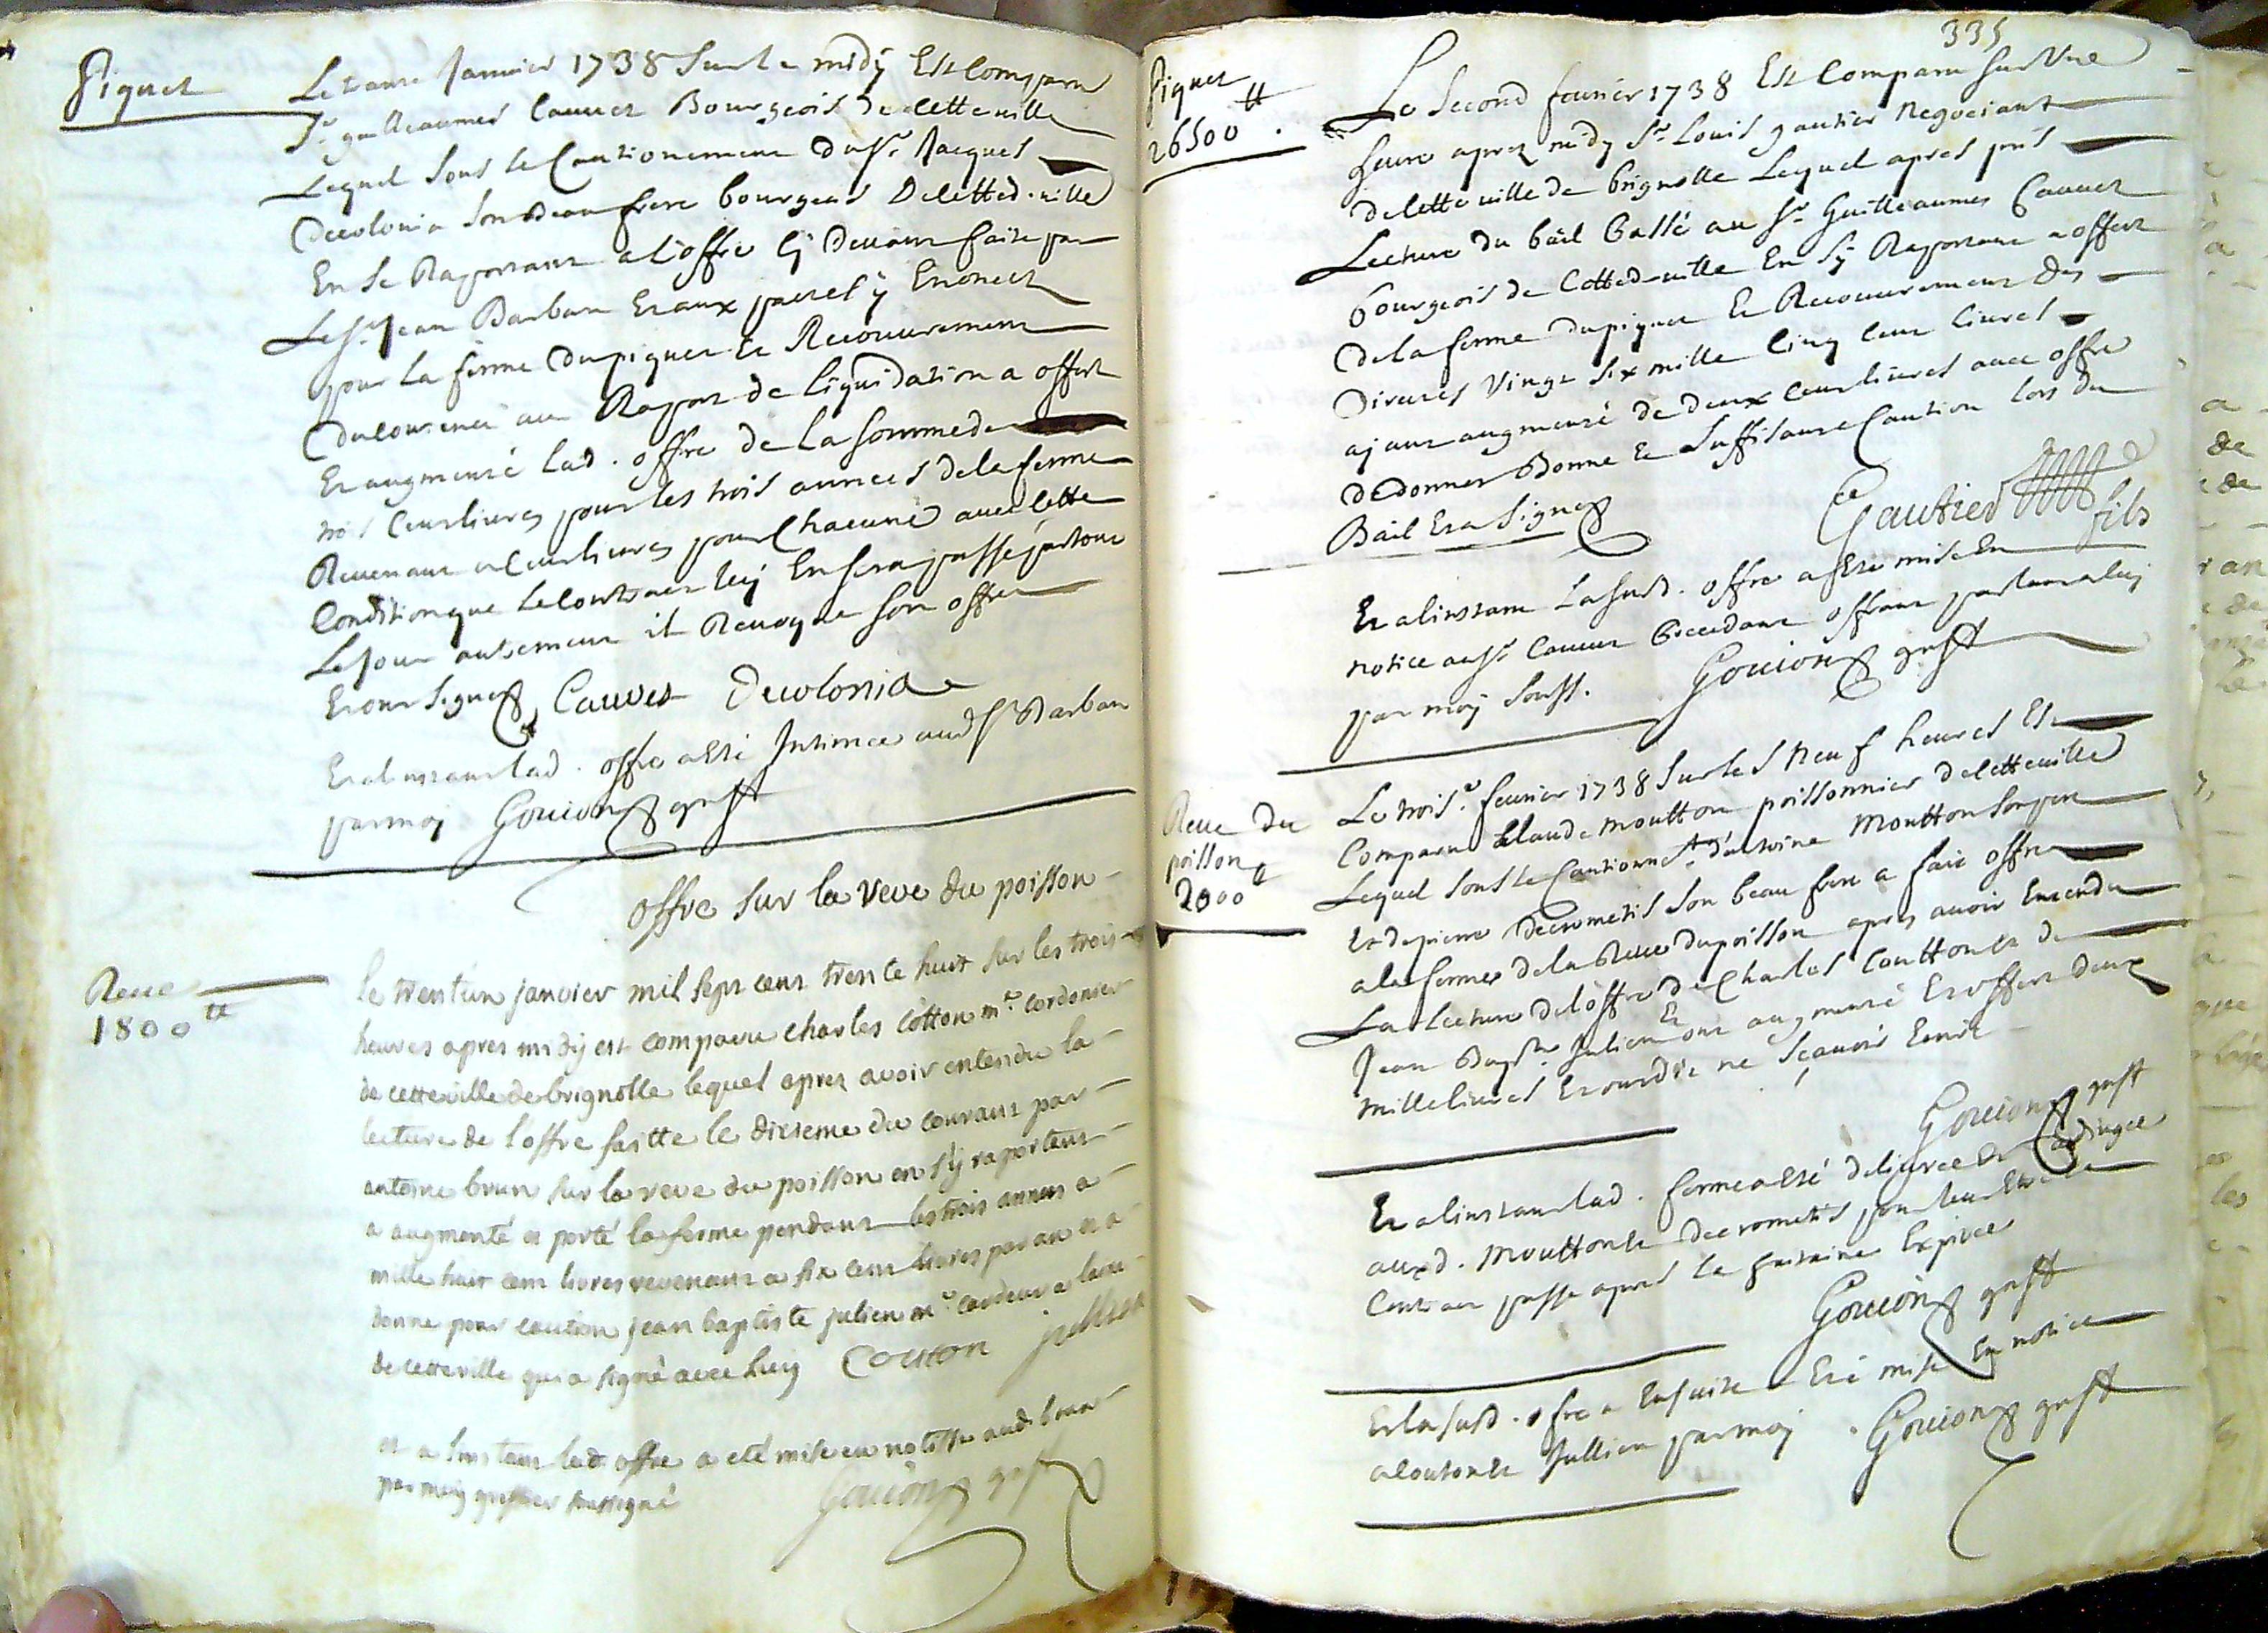 Piquet
Le trante Janvier 1738 Sur le midy Est Comparu
Sr guilleaumes Cauvet Bourgeois de cette ville
Lequel Sous le Cautionement du Sr Jacques
Decolonia Son Beau frere bourgeois De cetted. ville
En Se Raportant a l'offre cy Devant faite par
Le Sr Jean Barban Et aux pactes y Enoncez
pour La ferme Du piquet Et Recouvrement
Du Rapor de liquidation a offert
Et augmenté lad. offre de la Somme de
trois Cent livres pour les trois années de la ferme
Revenant a Cent livres pour Chacune avec cette
Condition que Le Contract luy En sera passé partout
Le Jour autrement il Revoque Son offre
Et ont Signé Cauvet Decolonia
Et a linstant lad. offre a esté Intimee aud Sr Barban
par moy Gouion greff
offre sur la Reve du poisson
Reve
1800 tt
le trentun janvier mil sept cent trente huit sur les trois
heures apres midy est comparu charles cotton me cordonier
de cette ville de brignolle lequel aprez avoir entendu la
lecture de l'offre faitte le dixieme du courant par
antoine brun sur la reve du poisson en s'y raportant
a augmenté et porté la ferme pendant les trois annees a
mille huit cent livres revenant a six cent livres par an et a
donné pour caution jean baptiste julien me cardeur a laine
de cette ville qui a signé avec luy Couton jullien
et a linstant lad. offre a eté mise en notisse aud. brun
par moy greffier soussigné Gouion greff
335
Piquet
26500 tt
Le Second fevrier 1738 Est Comparu Sur Une
heure aprez midy Sr Louis gautier Negociant
de cette ville de brignolle Lequel apres pris
Lecture du bail Passé au Sr Guilleaumes Cauvet
bourgeois de Cetted. ville En Sy Raportant a offert
De la ferme du piquet Et Recouvrement des
Dixenes Vingt Six mille Cinq Cent livres
ajant augmenté de deux Cent livres avec offre
de donner Bonne Et Suffisante Caution lors du
Bail Et a Signé
Gautier fils
Et a linstant La susd. offre a Esté mise En
notice au Sr Cauvet Precedant offrant parlant a luy
par moy Souss. Gouion greff
Reve du
poisson
2000
Le trois.e fevrier 1738 Sur les Neuf heures Est
Comparu Claude moutton poissonnier de cette ville
Lequel Sous le Cautionnet. d'antoine Moutton Son pere
Et de pierre Decrometis Son beau frere a fait offre
a la ferme de la Reve du poisson apres avoir Entendu
La Lecture de l'offre de Charles Coutton Et de
Jean Baptte Julien Et ont augmenté Et offert deux
mille livres Et ont dit ne Sçavoir Ecrire
Gouion greff
Et a linstant lad. ferme a esté delivree Et adjugee
auxd. Moutton Et Decrometis pour leur Estre le
Contract passé apres la huitaine Expirée
Gouion greff
Et la susd. ofre a Ensuite Eté mise En notice
a Couton Et Jullien par moy . Gouion greff